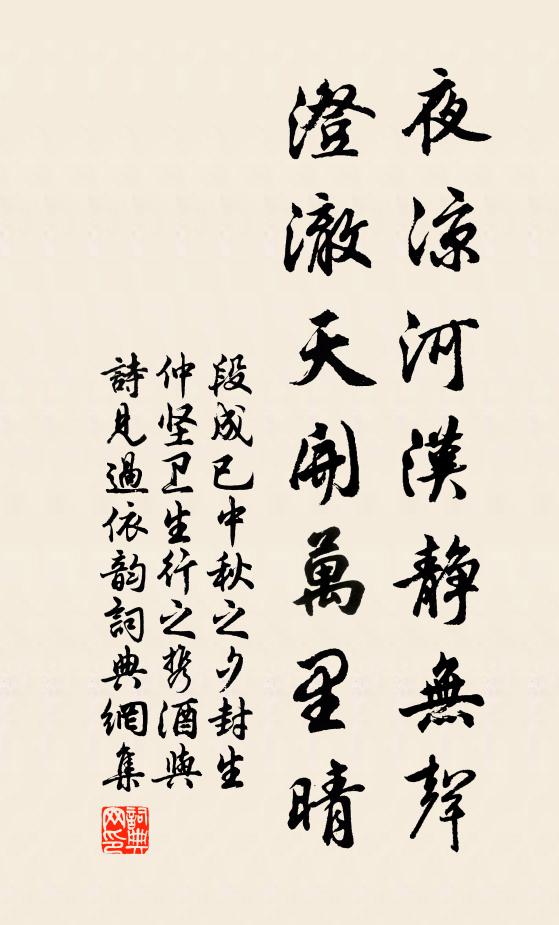 夜涼河漢靜無聲
澄澈天開萬里晴
段成己中秋之夕封生
仲坚卫生行之携酒與
詩見過依韵詞典網集
詞典
网印